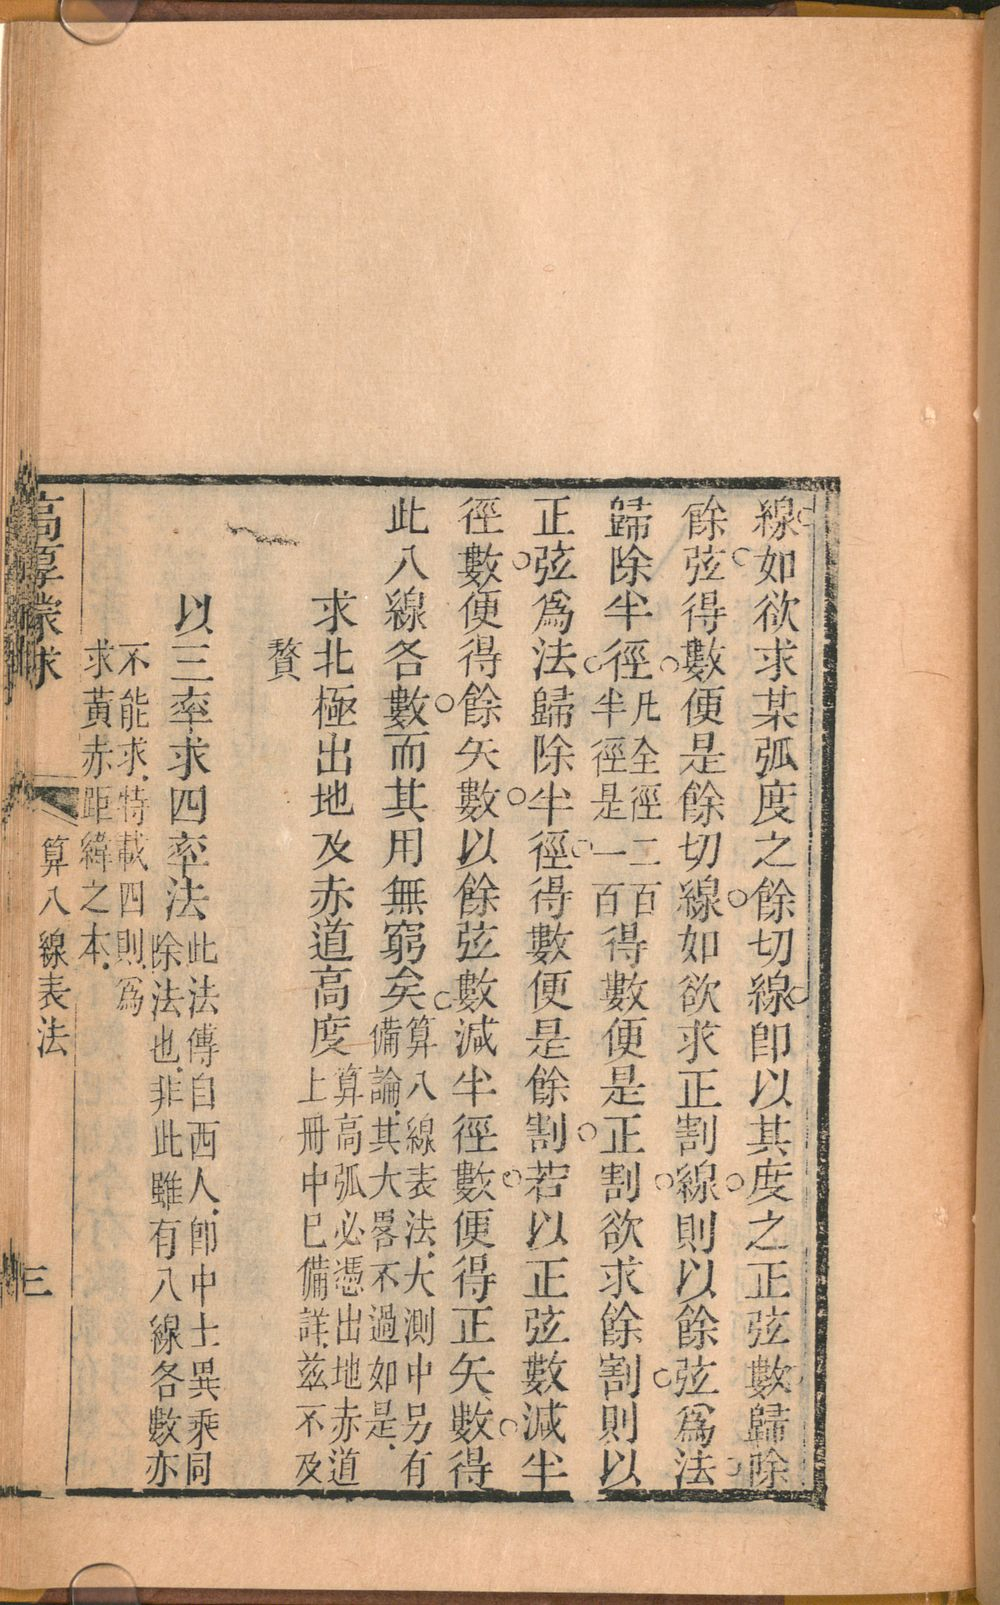 線如欲求某弧度之餘切線卽以其度之正弦數歸除
餘弦得數便是餘切線如欲求正割線則以餘弦爲法
歸除半徑凡全徑二百半徑是一百得數便是正割欲求餘割則以
正弦爲法歸除半徑得數便是餘割若以正弦數減半
徑數便得餘矢數以餘弦數減半徑數便得正矢數得
此八線各數而其用無窮矣算八線表法大測中另有備論其大畧不過如是
求北極出地及赤道高度算高弧必憑出地赤道上冊中已備詳茲不及
贅
以三率求四率法此法傳自西人卽中士異乘同除法也非此雖有八線各數亦
不能求特載四則爲
求黃赤距緯之本
高厚蒙求
算八線表法
三